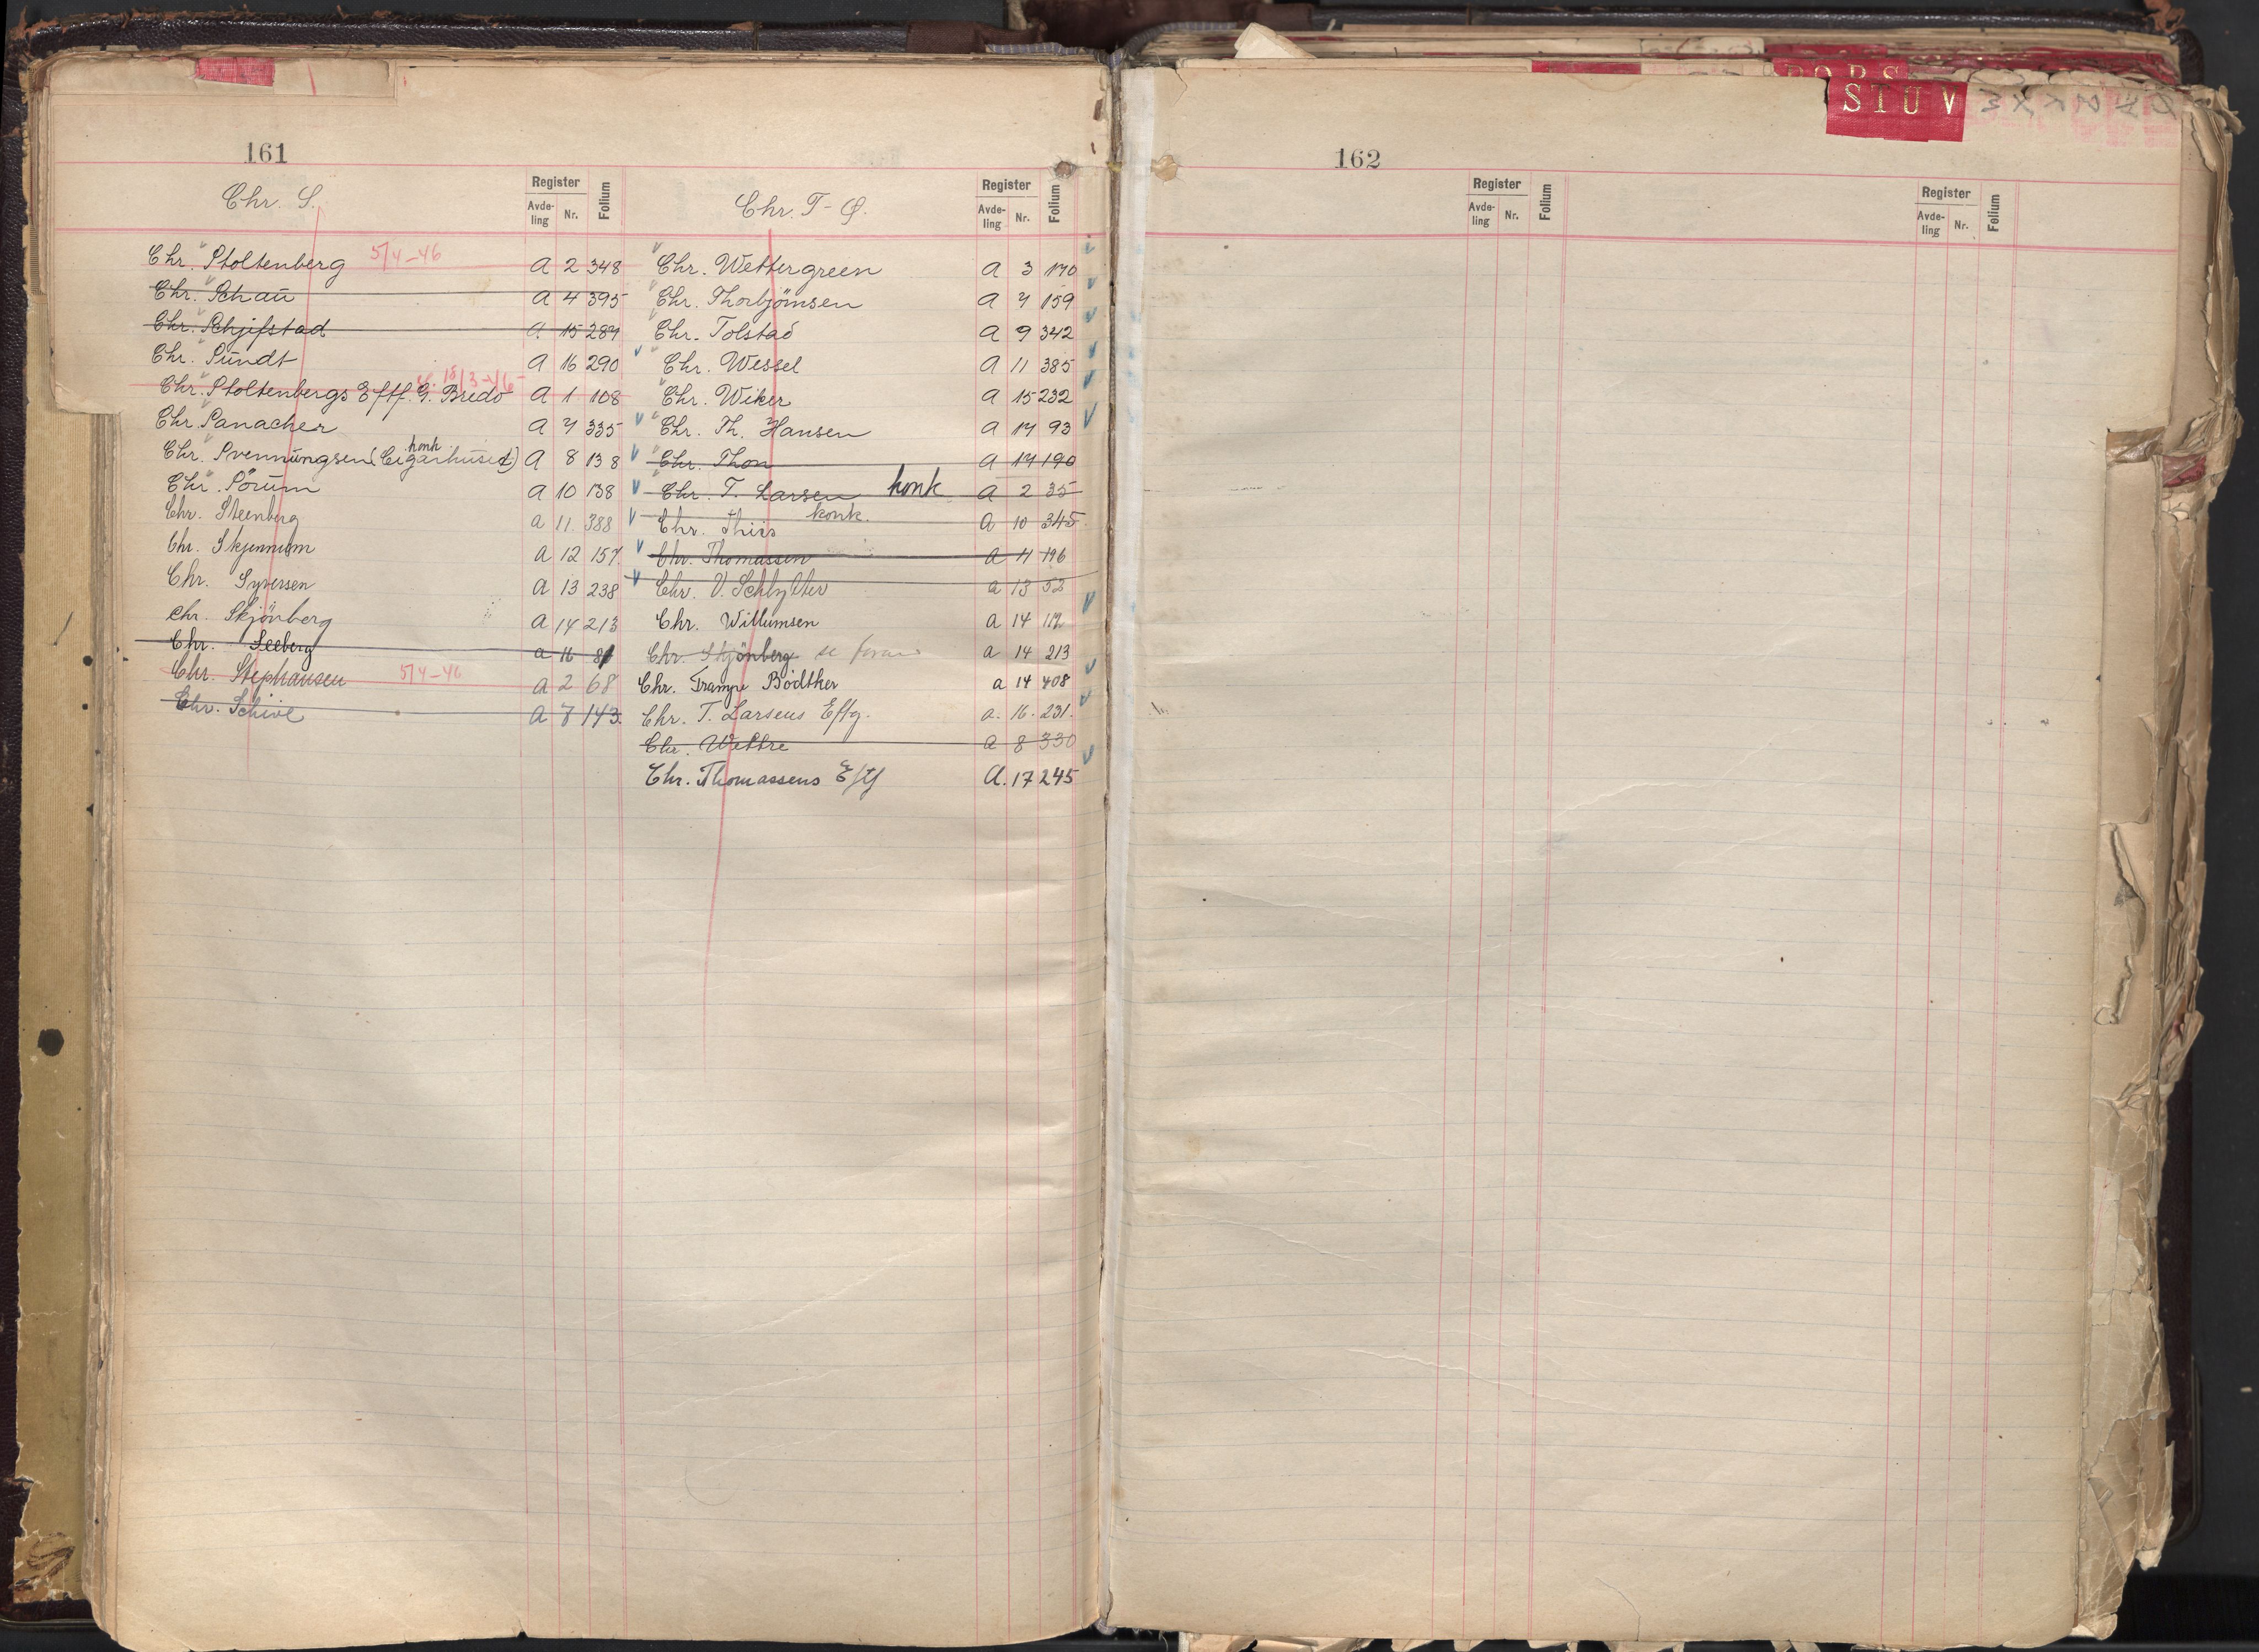 STUV
161
Chr. S.
Register
Avde-
ling
Nr.
Folium
Chr. Stoltenberg 5/4-46 A 2 348
Chr. Schau A 4 395
Chr. Schjifstad A. 15 287
Chr. Sundt A 16 290
Chr. Stoltenbergs Eftf. G. Bredo A 1 108
Chr. Sanacher A 7 335
konk
Chr. Svennungsen (Cigarhuset) A 8 138
Chr. Sörum A 10 138
Chr. Steenberg a 11. 388
Chr. Skjennum A 12 157.
Chr. Syversen A 13 238
Chr. Skjönberg A 14 213
Chr. Seeberg a 16 81
Chr. Stephansen 5/4-46 a 2 68
Chr. Schive A 7 143.
Chr. T-Ø.
Register
Avde-
ling
Nr.
Folium
Chr. Wettergreen A 3 170
Chr. Thorbjörnsen A 7 159
Chr. Tolstad A 9 342
Chr. Wessel A 11 385
Chr. Wiker A 15 232
Chr. Th. Hansen A 17 93
Chr. Thon A 17 190
Chr. T. Larsen konk A 2 35
konk.
Chr. Thiis A 10 345.
Chr. Thomassen A 11 196
Chr. V. Schlytter a 13 52
Chr. Willumsen A 14 112
Chr. Skjönberg se foran a 14 213
Chr. Trampe Bödtker a 14 408
Chr. T. Larsens Eftf. a. 16. 231.
Chr. Wettre a 8 330
Chr. Thomassens Eftf A. 17 245
162
Register
Avde-
ling
Nr.
Folium
Register
Avde-
ling
Nr.
Folium